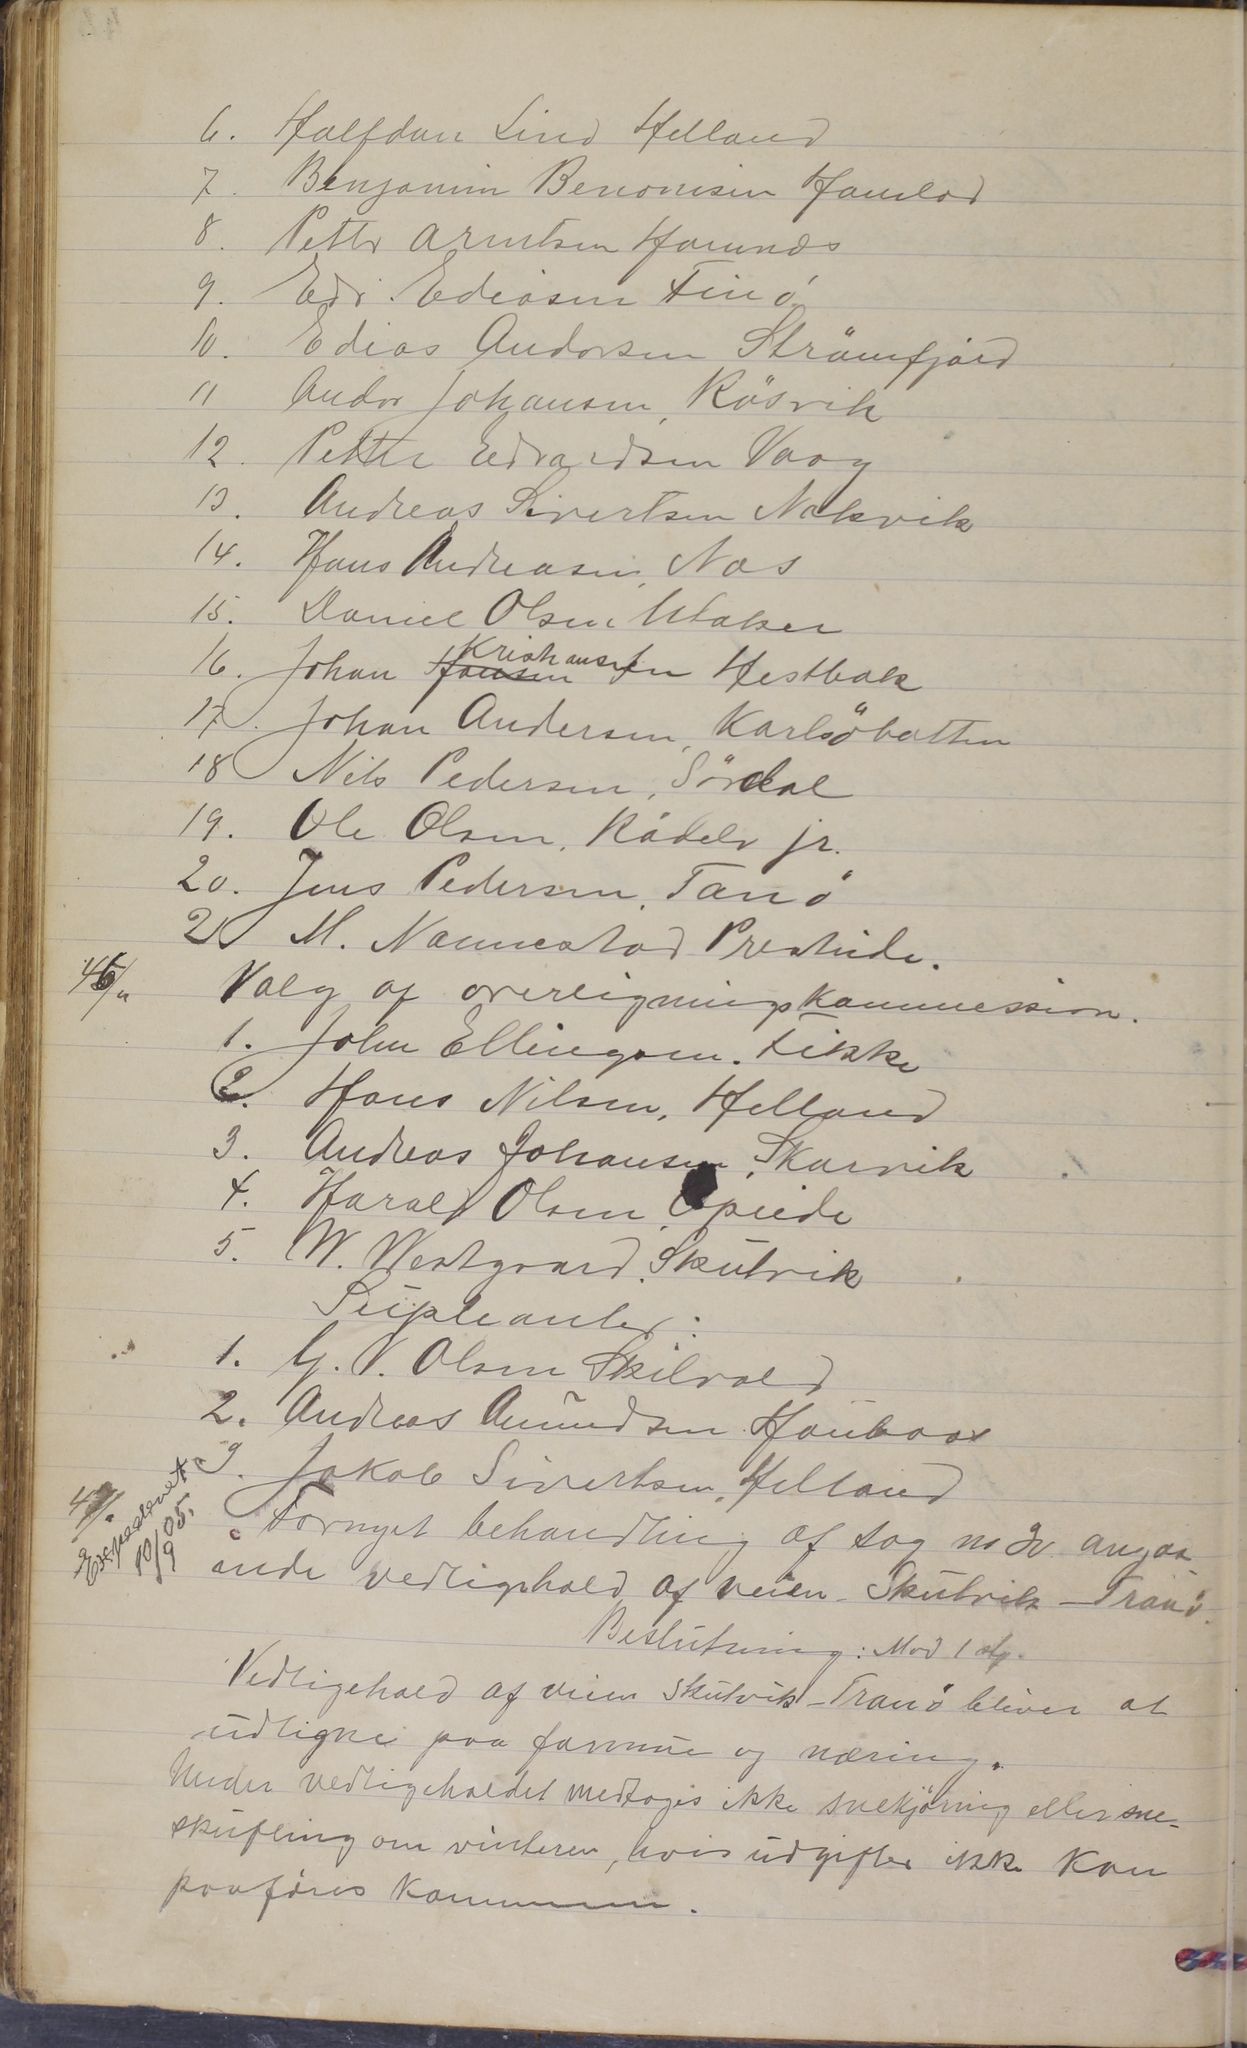 6. Halfdan Lind Helland
7. Benjamin Benonisen Hamlod
8. Petter Arntsen Hamnæs
9. Edv. Ediasen Finö
10. Edias Andorsen Strömfjord
11 Andor Johansen, Rösvik
12. Petter Edvardsen Vaag
13. Andreas Sivertsen Nakvik
14. Hans Andreasen, Næs
15. Daniel Olsen
16. Johan Hansen Kristiansen Hestbak
17. Johan Andersen, Karlsöbotten
18 Nils Pedersen, Sördal
19. Ole Olsen, Rådelv jr.
20. Jens Pedersen, Tanö
21 M. Nannestad Presteide.
46/11 Valg af overligningskommession.
1. John Ellingsen. Fikke
2. Hans Nilsen, Helland
3. Andreas Johansen, Skarvik
4. Harald Olsen, Opeide
5. W. Westgaard, Skutvik
Supleanter:
1. G. V. Olsen Skilvold
2. Andreas Amundsen Haubaas
3. Jakob Sivertsen, Helland
47/11 Fornyet behandling af sag no angaa
Expederet 10/9 05.
ende vedligehold af veien Skutvik – Tranö.
Beslutning: Mod 1 st.
Vedligehold af veien Skutvik – Tranö bliver at
udligne paa formue og næring.
Under vedligeholdet medtages ikke snekjörning eller sne-
skufling om vinteren, hvis udgifter ikke kan
paaföres kommunen.